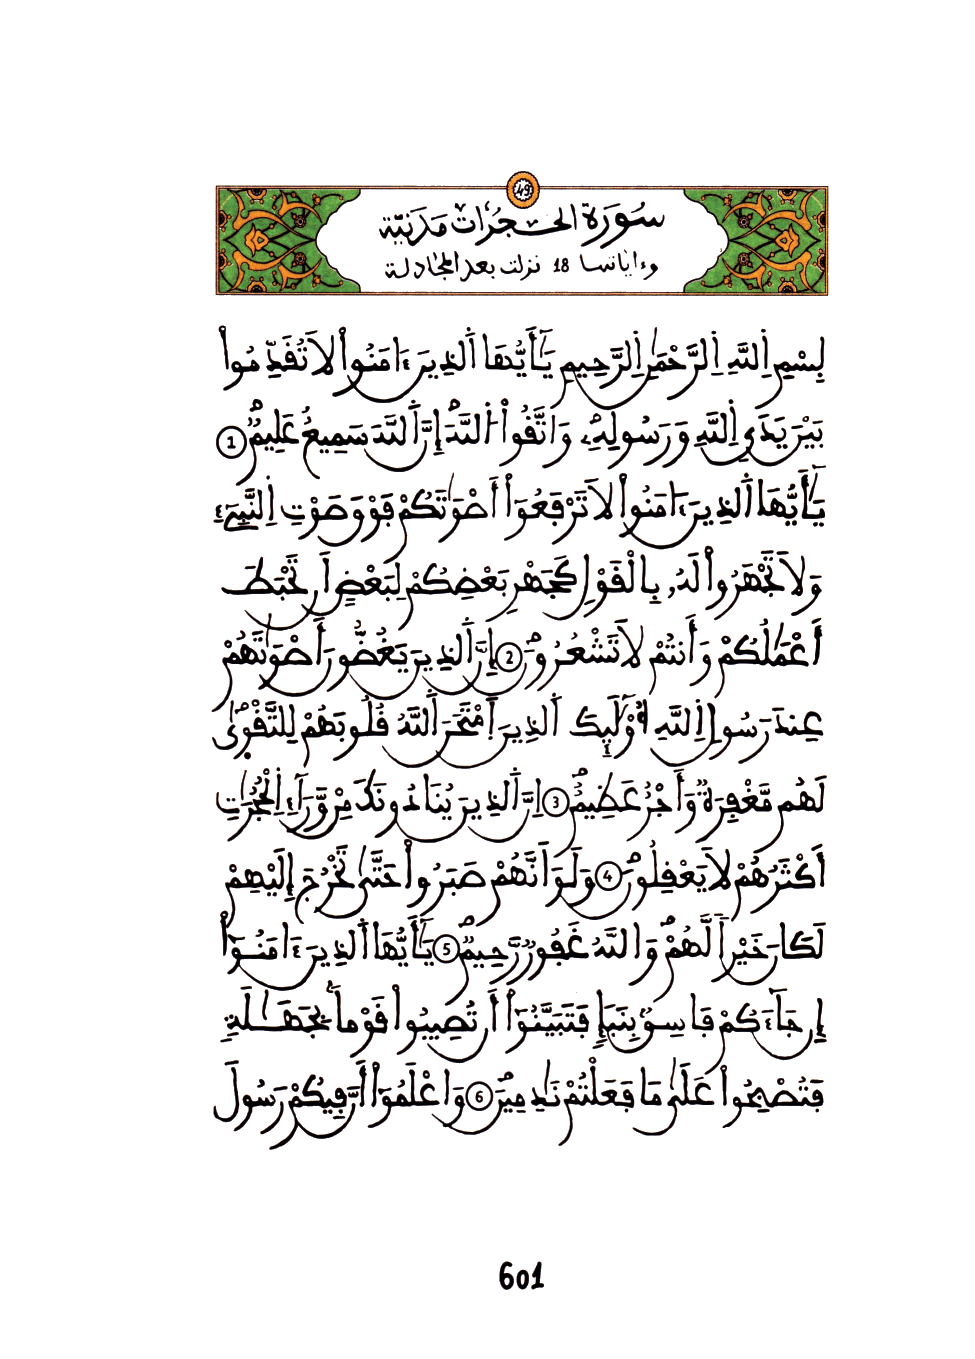 49
سُورَةُ الحُجُرَاتِ مَدَنِيَّة
وءاياتها 18 نزلت بعد المجادلة
بِسْمِ اِ۬للَّهِ اِ۬لرَّحْمَٰنِ اِ۬لرَّحِيمِ يَٰٓأَيُّهَا اَ۬لذِينَ ءَامَنُواْ لَا تُقَدِّمُواْ
بَيْنَ يَدَيِ اِ۬للَّهِ وَرَسُولِهِۦ وَاتَّقُواْ اُ۬للَّهَۖ إِنَّ اَ۬للَّهَ سَمِيعٌ عَلِيمٞۖ 1
يَٰٓأَيُّهَا اَ۬لذِينَ ءَامَنُواْ لَا تَرْفَعُوٓاْ أَصْوَٰتَكُمْ فَوْقَ صَوْتِ اِ۬لنَّبِيٓءِ
وَلَا تَجْهَرُواْ لَهُۥ بِالْقَوْلِ كَجَهْرِ بَعْضِكُمْ لِبَعْضٍ أَن تَحْبَطَ
أَعْمَٰلُكُمْ وَأَنتُمْ لَا تَشْعُرُونَۖ 2 إِنَّ اَ۬لذِينَ يَغُضُّونَ أَصْوَٰتَهُمْ
عِندَ رَسُولِ اِ۬للَّهِ أُوْلَٰٓئِكَ اَ۬لذِينَ اَ۪مْتَحَنَ اَ۬للَّهُ قُلُوبَهُمْ لِلتَّقْو۪يٰۖ
لَهُم مَّغْفِرَةٞ وَأَجْرٌ عَظِيمٌۖ 3 اِنَّ اَ۬لذِينَ يُنَادُونَكَ مِنْ وَّرَآءِ اِ۬لْحُجُرَٰتِ
أَكْثَرُهُمْ لَا يَعْقِلُونَۖ 4 وَلَوَ اَنَّهُمْ صَبَرُواْ حَتَّىٰ تَخْرُجَ إِلَيْهِمْ
لَكَانَ خَيْراٗ لَّهُمْۖ وَاللَّهُ غَفُورٞ رَّحِيمٞۖ 5 يَٰٓأَيُّهَا اَ۬لذِينَ ءَامَنُوٓاْ
إِن جَآءَكُمْ فَاسِقُۢ بِنَبَإٖ فَتَبَيَّنُوٓاْ أَن تُصِيبُواْ قَوْماَۢ بِجَهَٰلَةٖ
فَتُصْبِحُواْ عَلَىٰ مَا فَعَلْتُمْ نَٰدِمِينَۖ 6 وَاعْلَمُوٓاْ أَنَّ فِيكُمْ رَسُولَ
601